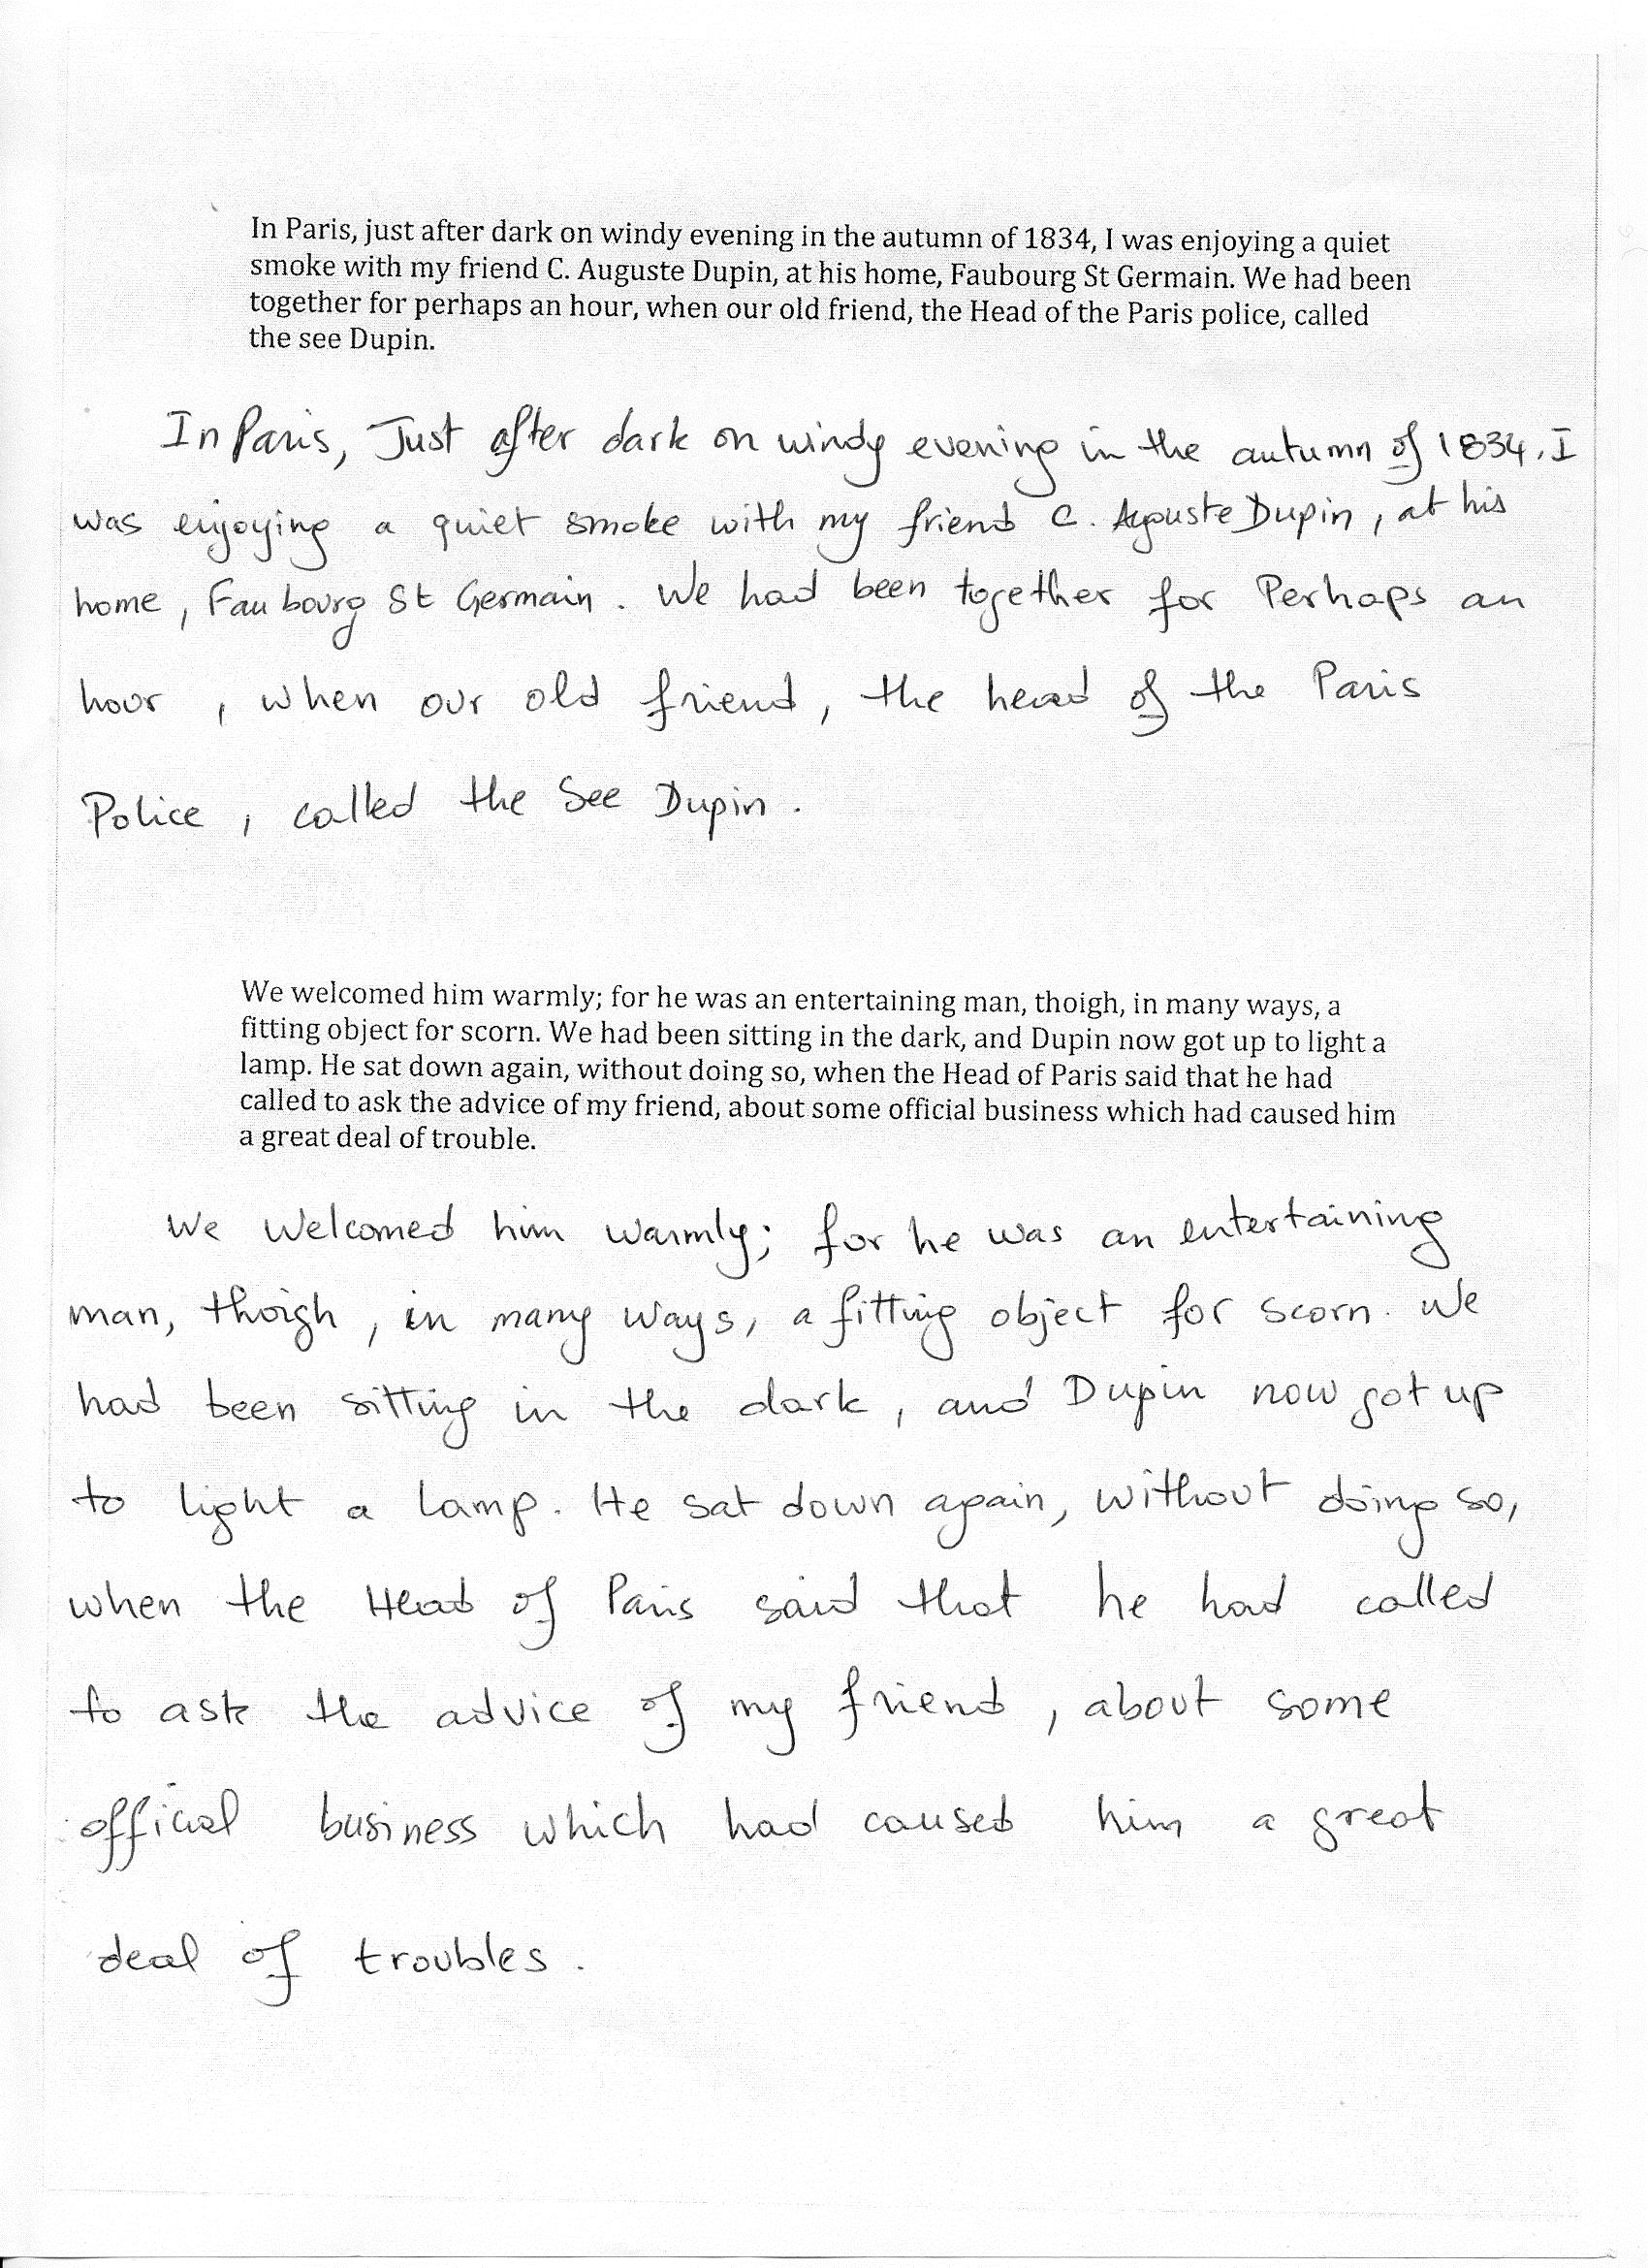 In Paris, just after dark on windy evening in the autumn of 1834, I was enjoying a quiet
smoke with my friend C. Auguste Dupin, at his home, Faubourg St Germain. We had been
together for perhaps an hour, when our old friend, the Head of the Paris police, called
the see Dupin.
In Paris, Just after dark on windy evening in the autumn of 1834, I
was enjoying a quiet smoke with my friend C. Auguste Dupin, at his
home, Faubourg St Germain. We had been together for Perhaps an
hour, when our old friend, the head of the Paris
Police, called the See Dupin.
We welcomed him warmly; for he was an entertaining man, thoigh, in many ways, a
fitting object for scorn. We had been sitting in the dark, and Dupin now got up to light a
lamp. He sat down again, without doing so, when the Head of Paris said that he had
called to ask the advice of my friend, about some official business which had caused him
a great deal of trouble.
We Welcomed him warmly; for he was an entertaining
man, thoigh, in many ways, a fitting object for scorn. We
had been sitting in the dark, and Dupin now got up
to light a lamp. He sat down again, without doing so,
when the Head of Paris said that he had called
to ask the advice of my friend, about some
official business which had caused him a great
deal of troubles.